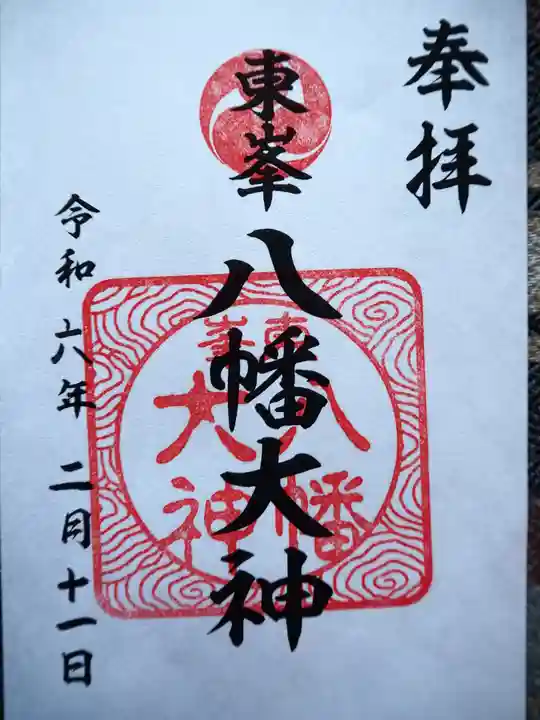 奉拝
東峯
八幡大神
東峯
八幡
大神
令和六年二月十一日